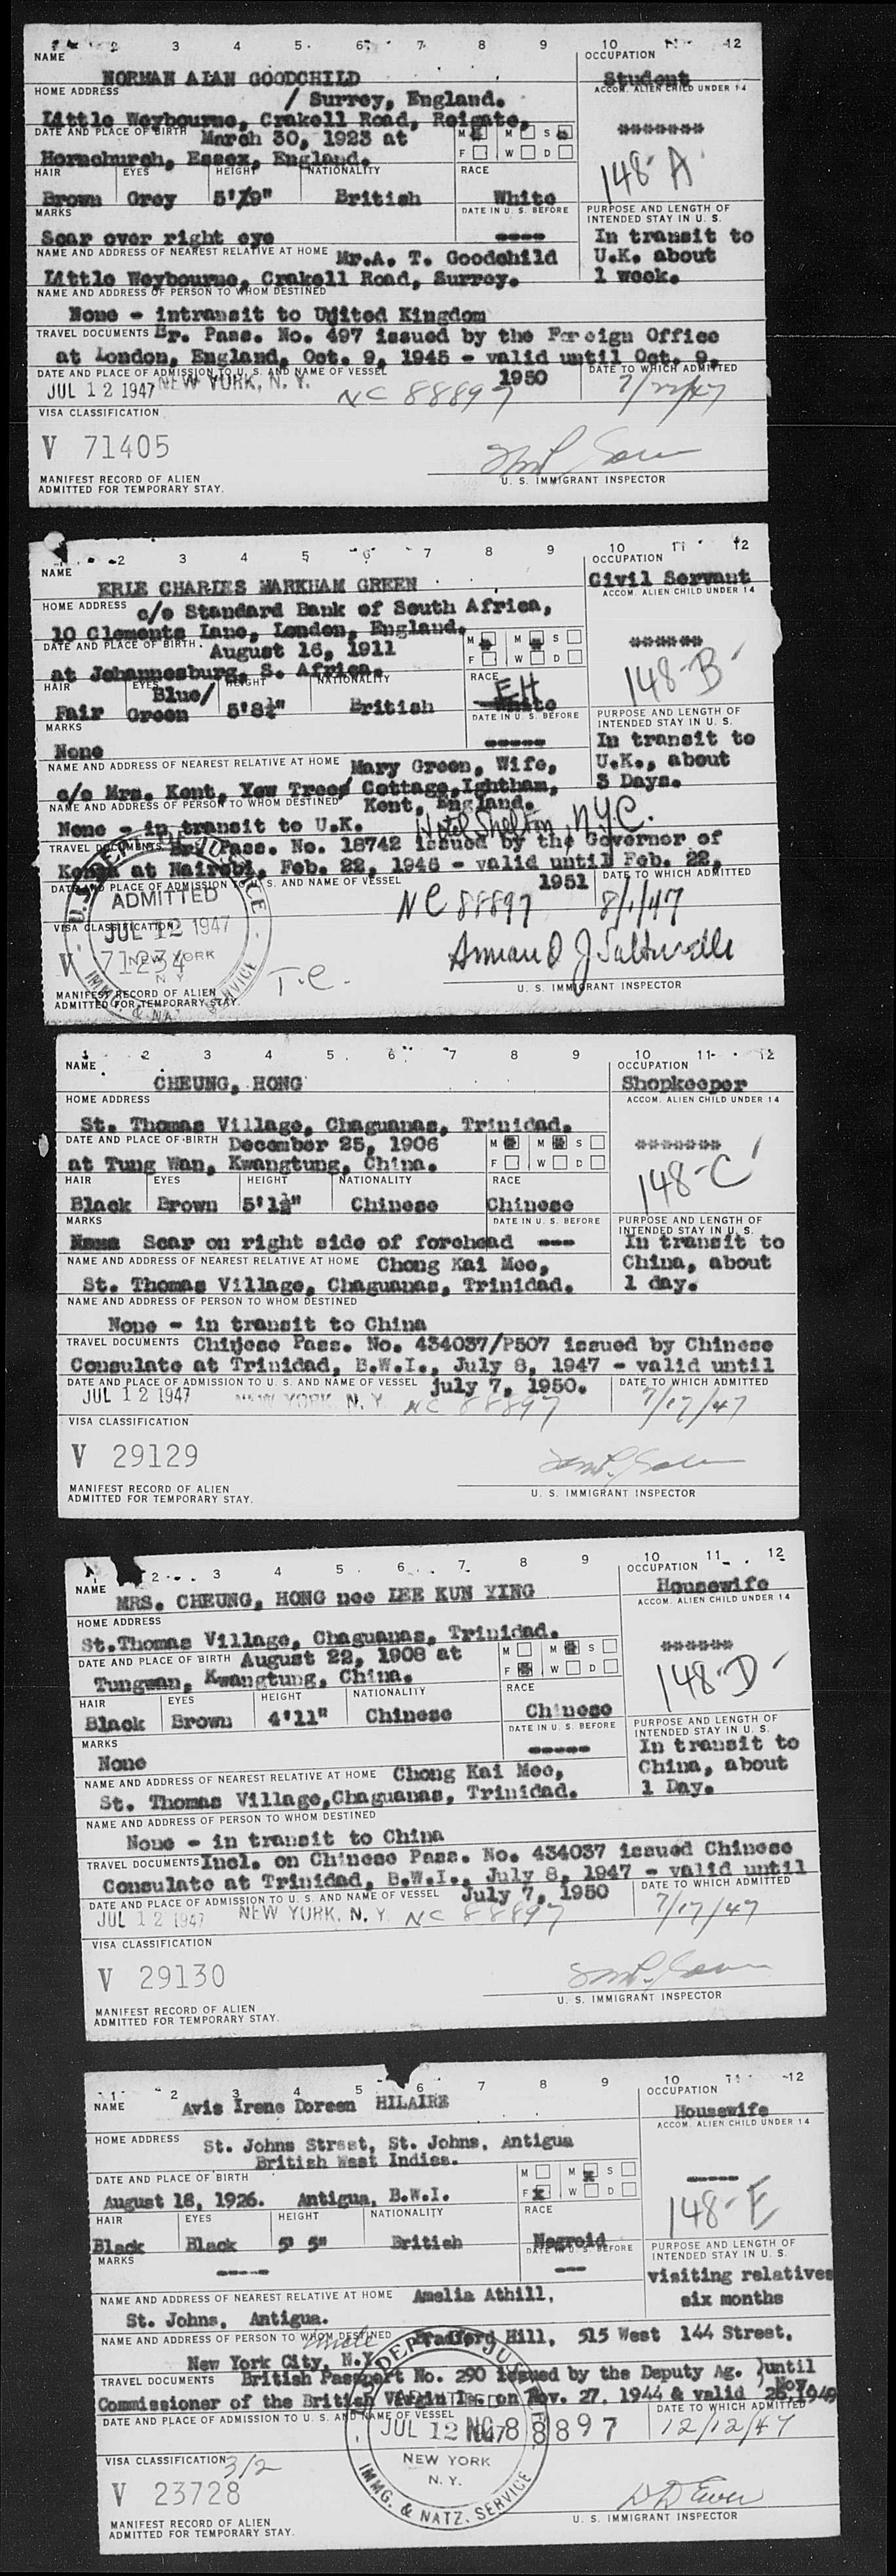 1 2 3 4 5 6 7 8 9 10 11 12
NAME OCCUPATION
NORMAN ALAN GOODCHILD Student
HOME ADDRESS ACCOM. ALIEN CHILD UNDER 14
/ Surrey, England.
Little Weybourne, Crakell Road, Reigate,
DATE AND PLACE OF BIRTH March 30, 1923 at M M S *******
Hornchurch, Essex, England. F W D 148-A
HAIR EYES HEIGHT NATIONALITY RACE
Brown Grey 5'9" British White
MARKS DATE IN U. S. BEFORE PURPOSE AND LENGTH OF INTENDED STAY IN U. S.
Scar over right eye ---- In transit to
NAME AND ADDRESS OF NEAREST RELATIVE AT HOME Mr.A. T. Goodchild U.K. about
Little Weybourne, Crakell Road, Surrey. 1 week.
NAME AND ADDRESS OF PERSON TO WHOM DESTINED
None - intransit to United Kingdom
TRAVEL DOCUMENTS Br. Pass. No. 497 issued by the Foreign Office
at London, England, Oct. 9, 1945 - valid until Oct. 9,
DATE AND PLACE OF ADMISSION TO U. S. AND NAME OF VESSEL 1950 DATE TO WHICH ADMITTED
JUL 12 1947 NEW YORK, N. Y. NC 88897 7/22/47
VISA CLASSIFICATION
V 71405
MANIFEST RECORD OF ALIEN
ADMITTED FOR TEMPORARY STAY. U. S. IMMIGRANT INSPECTOR
2 3 4 5 6 7 8 9 10 11 12
NAME OCCUPATION
ERLE CHARLES MARKHAM GREEN Civil Servant
HOME ADDRESS c/o Standard Bank of South Africa, ACCOM. ALIEN CHILD UNDER 14
10 Clements Lane, London, England.
DATE AND PLACE OF BIRTH August 16, 1911 M M S *******
at Johannesburg, S. Africa. F W D 148-B
HAIR EYES HEIGHT NATIONALITY RACE EH
Fair Blue/ Green 5'8½" British White
MARKS DATE IN U. S. BEFORE PURPOSE AND LENGTH OF INTENDED STAY IN U. S.
None ----- In transit to
NAME AND ADDRESS OF NEAREST RELATIVE AT HOME Mary Green, Wife, U.K., about
c/o Mrs. Kent, Yew Trees Cottage,Ightham, 3 Days.
NAME AND ADDRESS OF PERSON TO WHOM DESTINED Kent, England.
None - in transit to U.K. Hotel Shelton, N.Y.C.
TRAVEL DOCUMENTS Br. Pass. No. 18742 issued by the Governor of
Kenya at Nairobi, Feb. 22, 1946 - valid until Feb. 22,
DATE AND PLACE OF ADMISSION TO U. S. AND NAME OF VESSEL 1951 DATE TO WHICH ADMITTED
ADMITTED NC 88897 8/1/47
VISA CLASSIFICATION JUL 12 1947
V 71234 NEW YORK N. Y. T.C.
MANIFEST RECORD OF ALIEN
ADMITTED FOR TEMPORARY STAY. U. S. IMMIGRANT INSPECTOR
1 2 3 4 5 6 7 8 9 10 11 12
NAME OCCUPATION
CHEUNG, HONG Shopkeeper
HOME ADDRESS ACCOM. ALIEN CHILD UNDER 14
St. Thomas Village, Chaguanas, Trinidad.
DATE AND PLACE OF BIRTH December 25, 1906 M M S *******
at Tung Wan, Kwangtung, China. F W D 148-C
HAIR EYES HEIGHT NATIONALITY RACE
Black Brown 5'1½" Chinese Chinese
MARKS DATE IN U. S. BEFORE PURPOSE AND LENGTH OF INTENDED STAY IN U. S.
Scar on right side of forehead --- In transit to
NAME AND ADDRESS OF NEAREST RELATIVE AT HOME Chong Kai Mee, China, about
St. Thomas Village, Chaguanas, Trinidad. 1 day.
NAME AND ADDRESS OF PERSON TO WHOM DESTINED
None - in transit to China
TRAVEL DOCUMENTS Chinese Pass. No. 434037/P507 issued by Chinese
Consulate at Trinidad, B.W.I., July 8, 1947 - valid until
DATE AND PLACE OF ADMISSION TO U. S. AND NAME OF VESSEL july 7, 1950. DATE TO WHICH ADMITTED
JUL 12 1947 NEW YORK, N. Y. NC 88897 7/17/47
VISA CLASSIFICATION
V 29129
MANIFEST RECORD OF ALIEN
ADMITTED FOR TEMPORARY STAY. U. S. IMMIGRANT INSPECTOR
2 3 4 5 6 7 8 9 10 11 12
NAME OCCUPATION
MRS. CHEUNG, HONG nee LEE KUN YING Housewife
HOME ADDRESS ACCOM. ALIEN CHILD UNDER 14
St.Thomas Village, Chaguanas, Trinidad.
DATE AND PLACE OF BIRTH August 22, 1908 at M M S *******
Tungwan, Kwangtung, China. F W D 148-D
HAIR EYES HEIGHT NATIONALITY RACE
Black Brown 4'11" Chinese Chinese
MARKS DATE IN U. S. BEFORE PURPOSE AND LENGTH OF INTENDED STAY IN U. S.
None ----- In transit to
NAME AND ADDRESS OF NEAREST RELATIVE AT HOME Chong Kai Mee, China, about
St. Thomas Village,Chaguanas, Trinidad. 1 Day.
NAME AND ADDRESS OF PERSON TO WHOM DESTINED
None - in transit to China
TRAVEL DOCUMENTS Incl. on Chinese Pass. No. 434037 issued Chinese
Consulate at Trinidad, B.W.I., July 8, 1947 - valid until
DATE AND PLACE OF ADMISSION TO U. S. AND NAME OF VESSEL July 7, 1950 DATE TO WHICH ADMITTED
JUL 12 1947 NEW YORK, N. Y. NC 88897 7/17/47
VISA CLASSIFICATION
V 29130
MANIFEST RECORD OF ALIEN
ADMITTED FOR TEMPORARY STAY. U. S. IMMIGRANT INSPECTOR
1 2 3 4 5 6 7 8 9 10 11 12
NAME Avis Irene Doreen HILAIRE OCCUPATION
Housewife
HOME ADDRESS St. Johns Street, St. Johns, Antigua ACCOM. ALIEN CHILD UNDER 14
British West Indies.
DATE AND PLACE OF BIRTH M M S -----
August 18, 1926. Antigua, B.W.I. F W D 148-E
HAIR EYES HEIGHT NATIONALITY RACE
Black Black 5' 5" British Negroid
MARKS DATE IN U. S. BEFORE PURPOSE AND LENGTH OF INTENDED STAY IN U. S.
---- --- visiting relatives
NAME AND ADDRESS OF NEAREST RELATIVE AT HOME Amelia Athill, six months
St. Johns, Antigua.
NAME AND ADDRESS OF PERSON TO WHOM DESTINED uncle Bradford Hill, 515 West 144 Street,
New York City, N.Y.
TRAVEL DOCUMENTS British Passport No. 290 issued by the Deputy Ag. )until
Commissioner of the British Virgin Is. on Nov. 27, 1944 & valid Nov. 26, 1949
DATE AND PLACE OF ADMISSION TO U. S. AND NAME OF VESSEL DATE TO WHICH ADMITTED
JUL 12 1947 NC 88897 12/12/47
VISA CLASSIFICATION 3/2 NEW YORK
V 23728 N. Y.
IMMG. & NATZ. SERVICE
MANIFEST RECORD OF ALIEN
ADMITTED FOR TEMPORARY STAY. U. S. IMMIGRANT INSPECTOR